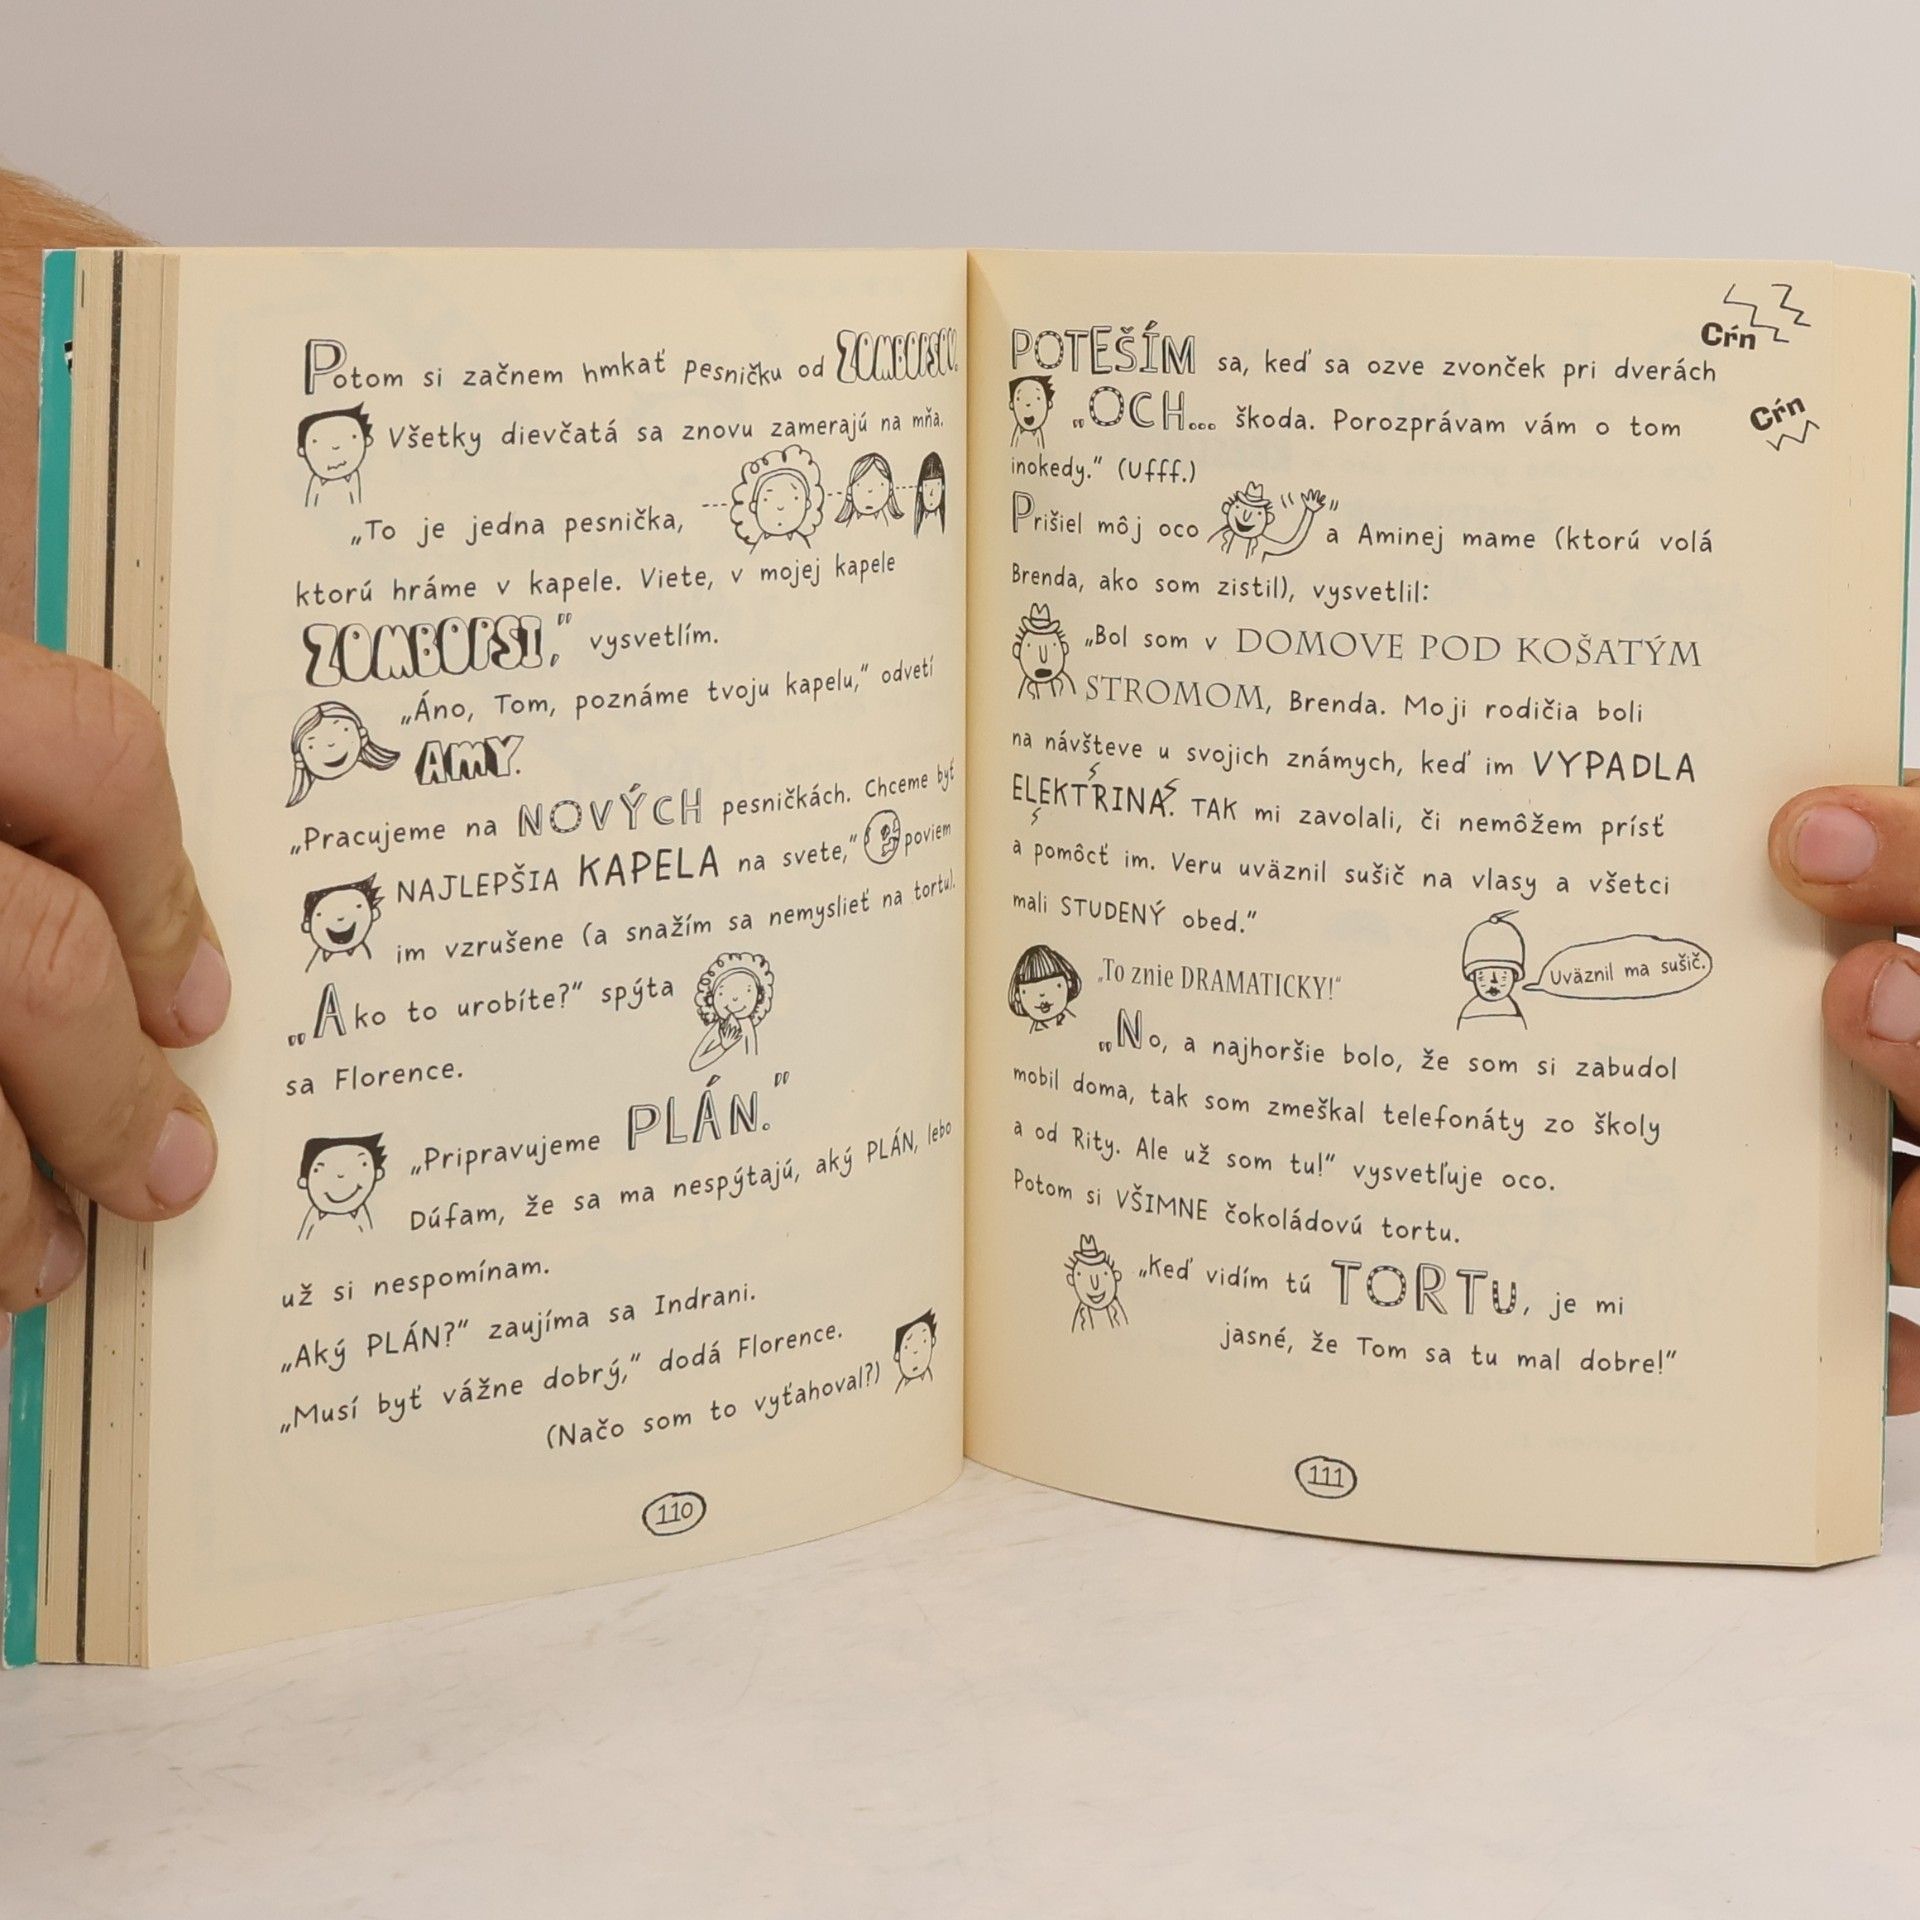 Potom si začnem hmkať pesničku od ZOMBOPSOV.
Všetky dievčatá sa znovu zamerajú na mňa.
„To je jedna pesnička,
ktorú hráme v kapele. Viete, v mojej kapele
ZOMBOPSI,“ vysvetlím.
„Áno, Tom, poznáme tvoju kapelu,“ odvetí
AMY.
„Pracujeme na NOVÝCH pesničkách. Chceme byť
NAJLEPŠIA KAPELA na svete,“ poviem
im vzrušene (a snažím sa nemyslieť na tortu).
„Ako to urobíte?“ spýta
sa Florence.
„Pripravujeme PLÁN.“
Dúfam, že sa ma nespýtajú, aký PLÁN, lebo
už si nespomínam.
„Aký PLÁN?“ zaujíma sa Indrani.
„Musí byť vážne dobrý,“ dodá Florence.
(Načo som to vyťahoval?)
110
Cŕn
POTEŠÍM sa, keď sa ozve zvonček pri dverách
Cŕn
„OCH... škoda. Porozprávam vám o tom
inokedy.“ (Ufff.)
Prišiel môj oco a Aminej mame (ktorú volá
Brenda, ako som zistil), vysvetlil:
„Bol som v DOMOVE POD KOŠATÝM
STROMOM, Brenda. Moji rodičia boli
na návšteve u svojich známych, keď im VYPADLA
ELEKTRINA. TAK mi zavolali, či nemôžem prísť
a pomôcť im. Veru uväznil sušič na vlasy a všetci
mali STUDENÝ obed.“
„To znie DRAMATICKY!“
Uväznil ma sušič.
„No, a najhoršie bolo, že som si zabudol
mobil doma, tak som zmeškal telefonáty zo školy
a od Rity. Ale už som tu!“ vysvetľuje oco.
Potom si VŠIMNE čokoládovú tortu.
„Keď vidím tú TORTU, je mi
jasné, že Tom sa tu mal dobre!“
111